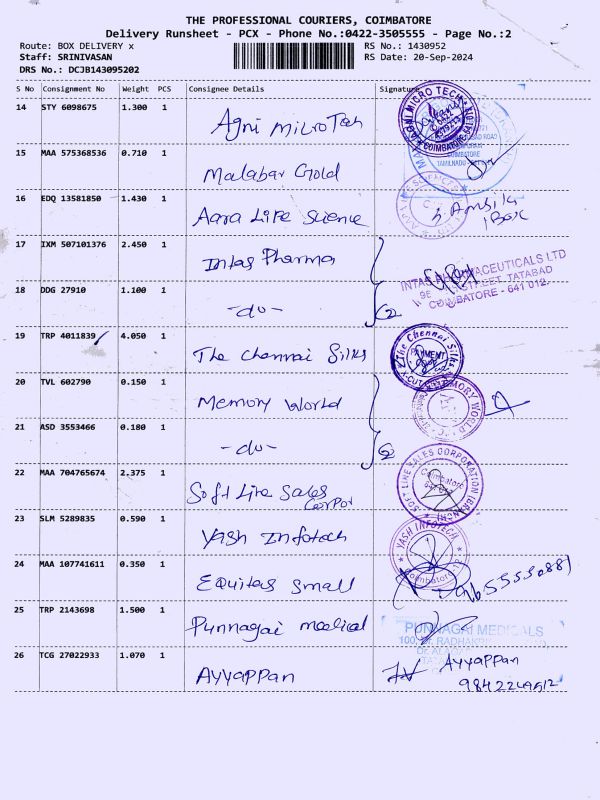 THE PROFESSIONAL COURIERS, COIMBATORE
Delivery Runsheet - PCX - Phone No.:0422-3505555 - Page No.:2
Route: BOX DELIVERY x RS No.: 1430952
Staff: SRINIVASAN RS Date: 20-Sep-2024
DRS No.: DCJB143095202
S No Consignment No Weight PCS Consignee Details Signature
14 STY 6098675 1.300 1 Agni Micro Tech
AGNI MICRO TECH COIMBATORE
15 MAA 575368536 0.710 1 Malabar Gold
COIMBATORE
TAMILNADU
16 EDQ 13581850 1.430 1 Aara Life Science
1 Box
17 IXM 507101376 2.450 1 Intas Pharma
INTAS PHARMACEUTICALS LTD
STREET, TATABAD
COIMBATORE - 641 012.
18 DDG 27910 1.100 1 -do- 2
19 TRP 4011839 4.050 1 The Chennai Silks
The Chennai Silks
20 TVL 602790 0.150 1 Memory World
MEMORY WORLD
21 ASD 3553466 0.180 1 -do- 2
22 MAA 704765674 2.375 1 Soft Line Sales
Corpor
SOFT LINE SALES CORPORATION
Coimbatore
23 SLM 5289835 0.590 1 Yash Infotech
YASH INFOTECH
Coimbatore
24 MAA 107741611 0.350 1 Equitas Small
25 TRP 2143698 1.500 1 Punnagai medical
PUNNAGAI MEDICALS
26 TCG 27022933 1.070 1 Ayyappan
Ayyappan